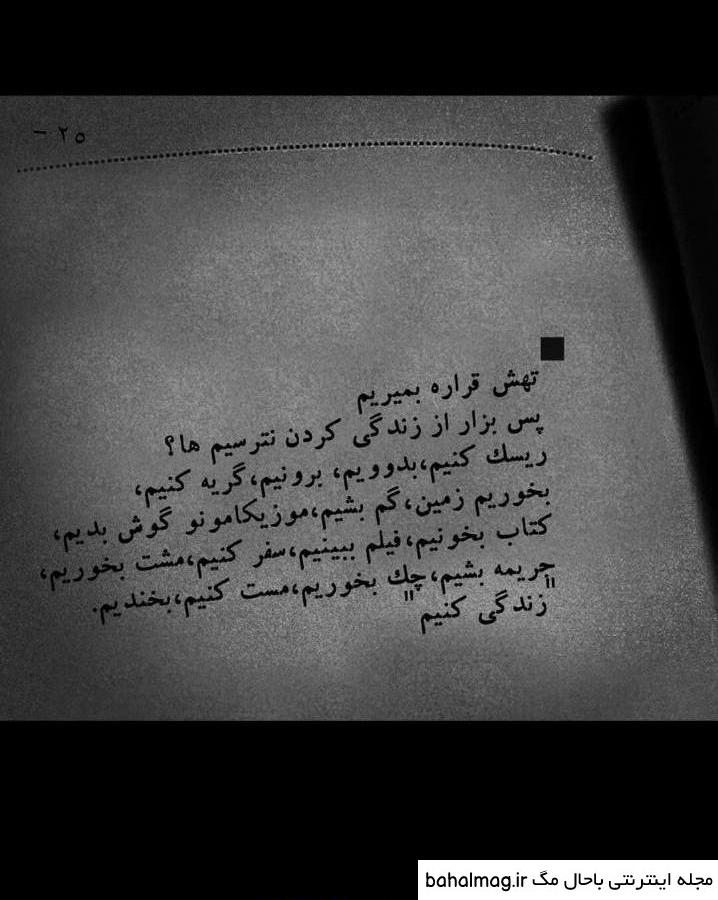 ۲۵ –
■
تهش قراره بمیریم
پس بزار از زندگی کردن نترسیم ها؟
ریسك کنیم،بدوویم، برونیم،گریه کنیم،
بخوریم زمین،گم بشیم،موزیکامونو گوش بدیم،
کتاب بخونیم،فیلم ببینیم،سفر کنیم،مشت بخوریم،
جریمه بشیم،چك بخوریم،مست کنیم،بخندیم.
"زندگی کنیم"
مجله اینترنتی باحال مگ bahalmag.ir